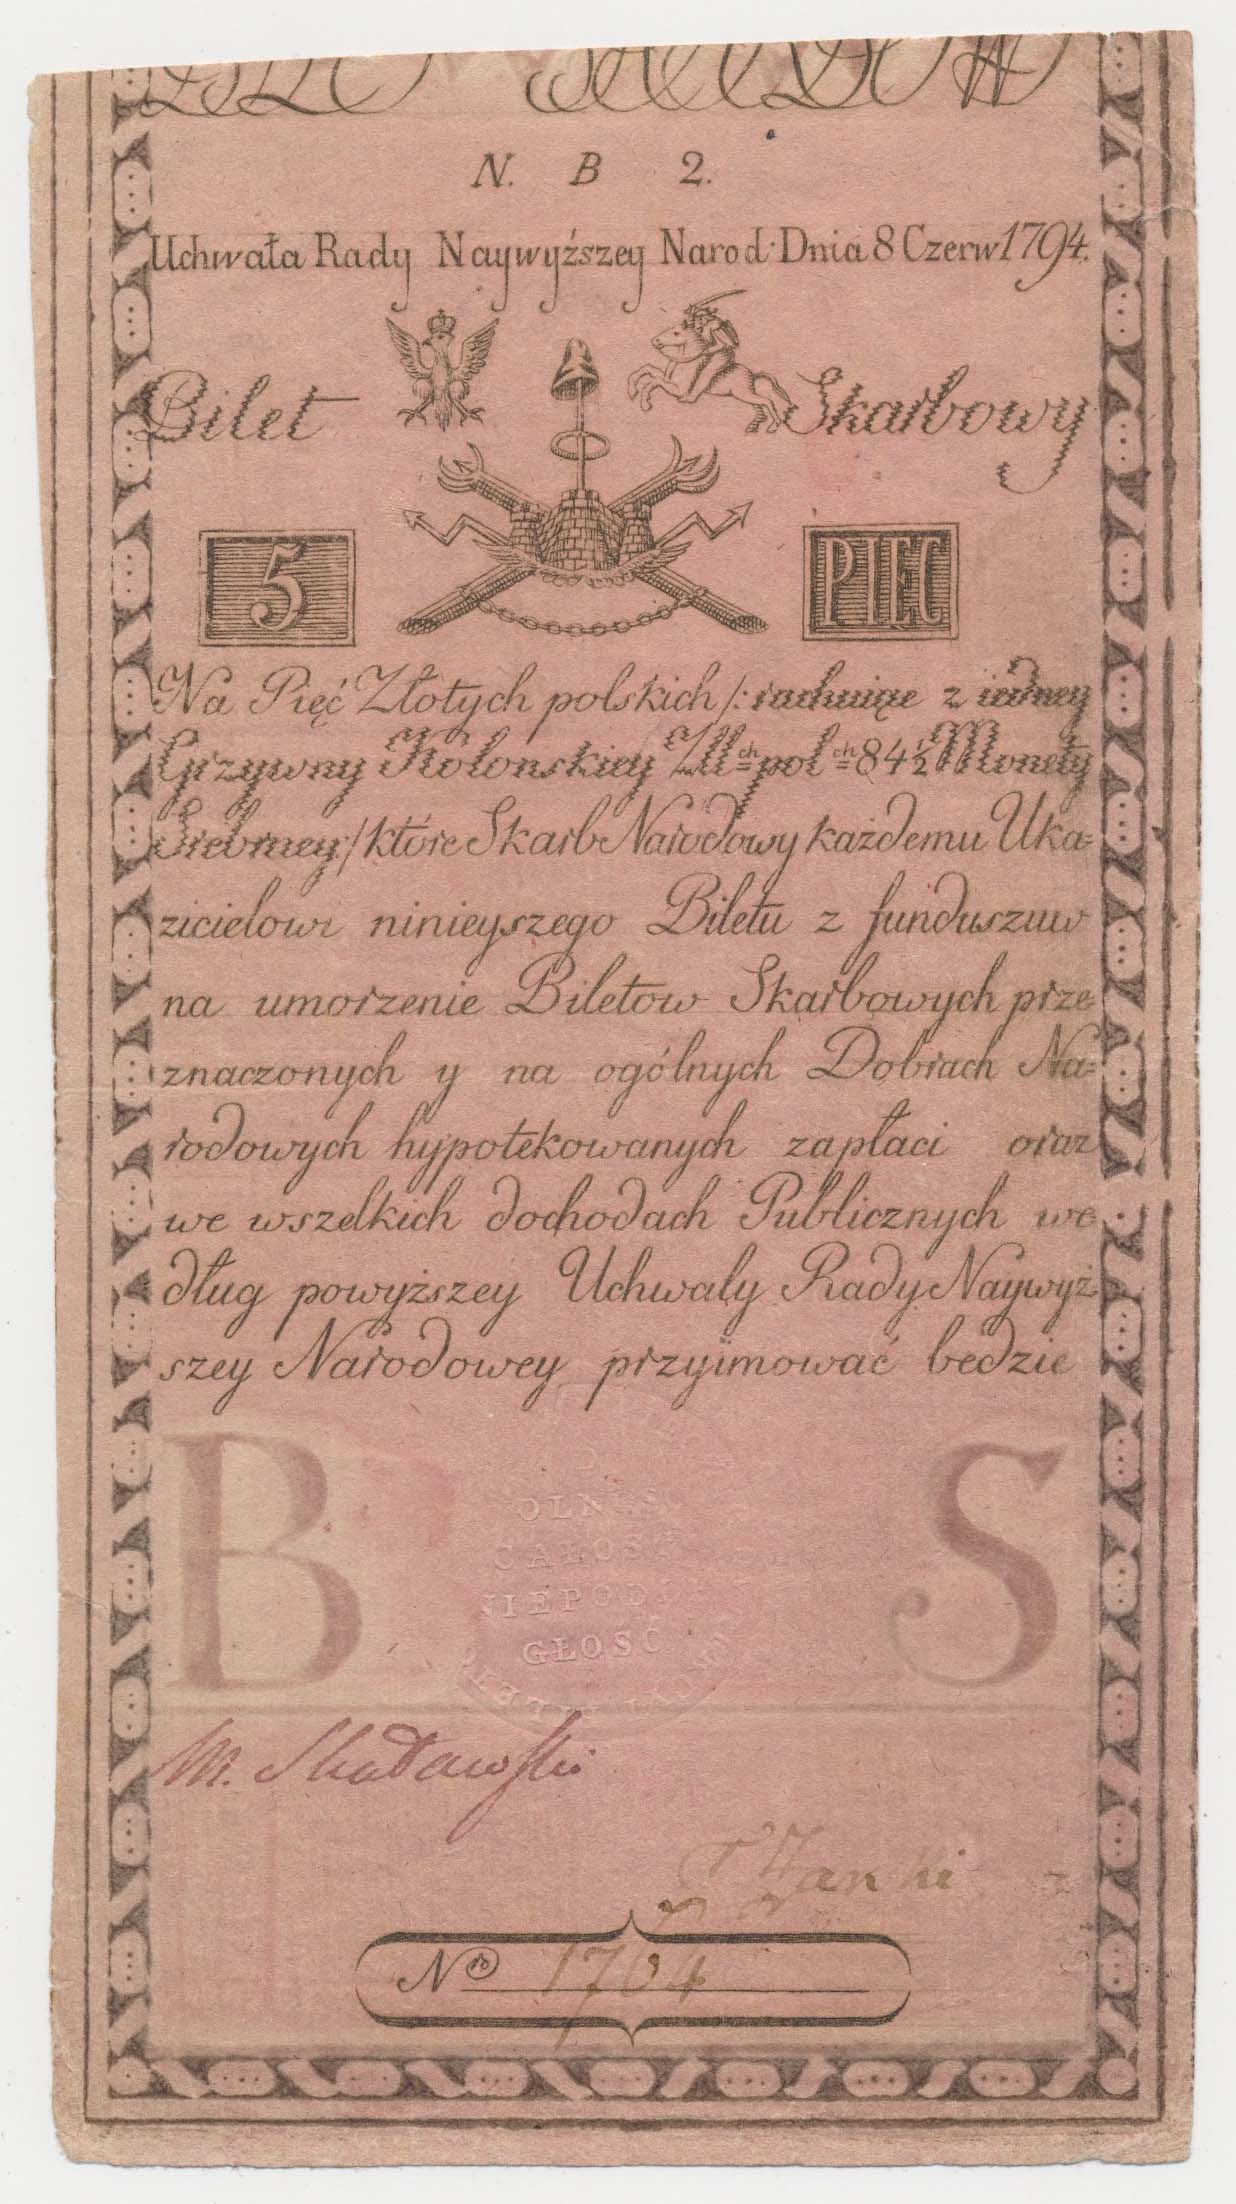 N. B 2.
Uchwała Rady Naywyźszey Narod. Dnia 8 Czerw 1794.
Bilet Skarbowy
5 PIĘC
Na Pięć Złotych polskich /: rachuiąc z iedney
Grzywny Kolonskiey Zll ch pol ch 84 1/2 Monety
Srebrney :/ które Skarb Narodowy każdemu Uka=
zicielowi ninieyszego Biletu z funduszuw
na umorzenie Biletow Skarbowych prze=
znaczonych y na ogólnych Dobrach Na=
rodowych hypotekowanych zapłaci oraz
we wszelkich dochodach Publicznych we
dług powyższey Uchwały Rady Naywyż
szey Narodowey przyimować bedzie
B S
CAŁOSĆ
GŁOSĆ
M. Skaławski
No 1764